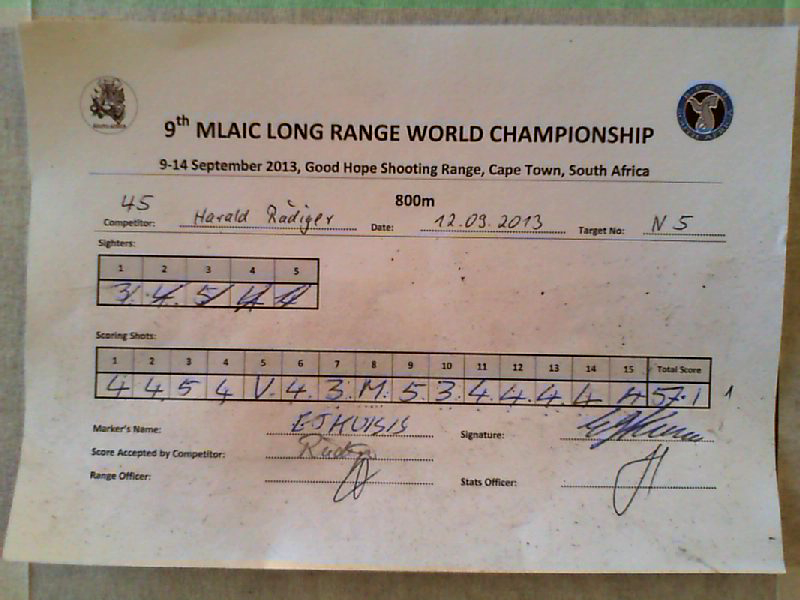 9th MLAIC LONG RANGE WORLD CHAMPIONSHIP
9-14 September 2013, Good Hope Shooting Range, Cape Town, South Africa
800m
45
Competitor: Harald Rädiger Date: 12.09.2013 Target No: N 5
Sighters:
1 2 3 4 5
3 4 5 4 4
Scoring Shots:
1 2 3 4 5 6 7 8 9 10 11 12 13 14 15 Total Score
4 4 5 4 V. 4. 3. M. 5 3. 4. 4. 4. 4 4 57.1 1
Marker's Name: EJHUISIS Signature:
Score Accepted by Competitor:
Range Officer: Stats Officer: